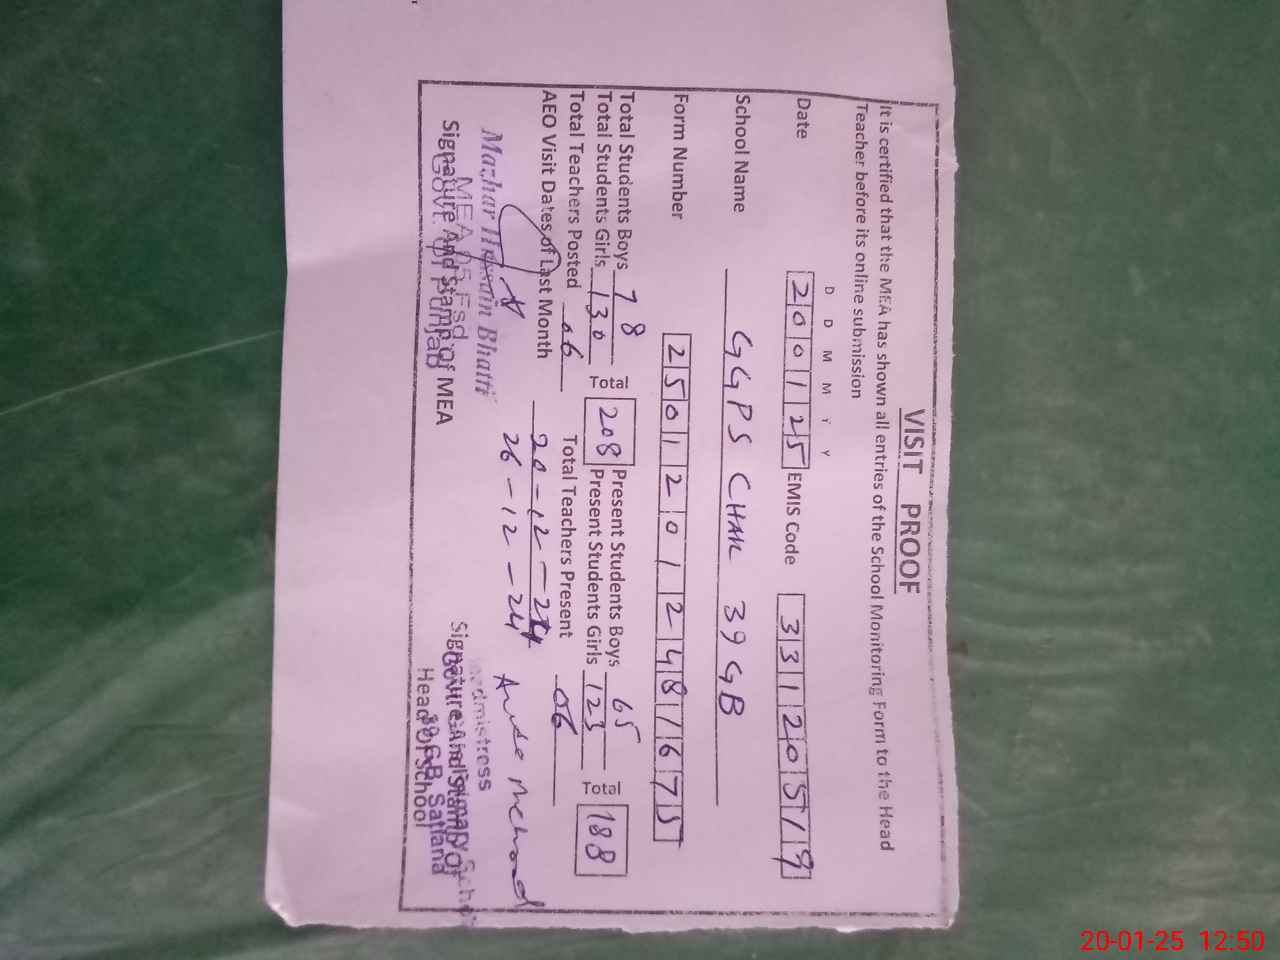 VISIT PROOF
It is certified that the MEA has shown all entries of the School Monitoring Form to the Head
Teacher before its online submission
D D M M Y Y
Date 200125 EMIS Code 33120519
School Name GGPS CHAK 39 GB
Form Number 25012012481675
Total Students Boys 78 Present Students Boys 65
Total Students Girls 130 Total 208 Present Students Girls 123 Total 188
Total Teachers Posted 06 Total Teachers Present 06
AEO Visit Dates of Last Month 20-12-24
26-12-24
Mazhar Hussain Bhatti
MEA 05 Fsd
Govt. Of Punjab
Signature And Stamp of MEA
Signature And Stamp Of
Head Of School
39 G.B. Satiana
20-01-25 12:50